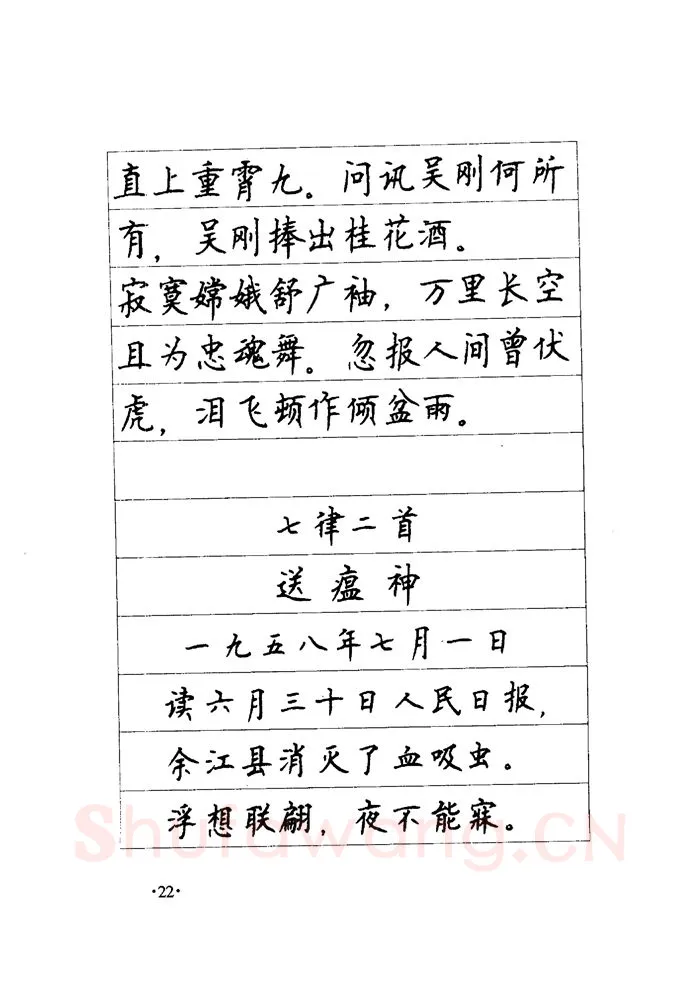 直上重霄九。问讯吴刚何所
有，吴刚捧出桂花酒。
寂寞嫦娥舒广袖，万里长空
且为忠魂舞。忽报人间曾伏
虎，泪飞顿作倾盆雨。
七律二首
送瘟神
一九五八年七月一日
读六月三十日人民日报，
余江县消灭了血吸虫。
浮想联翩，夜不能寐。
Shufawang.CN
·22·